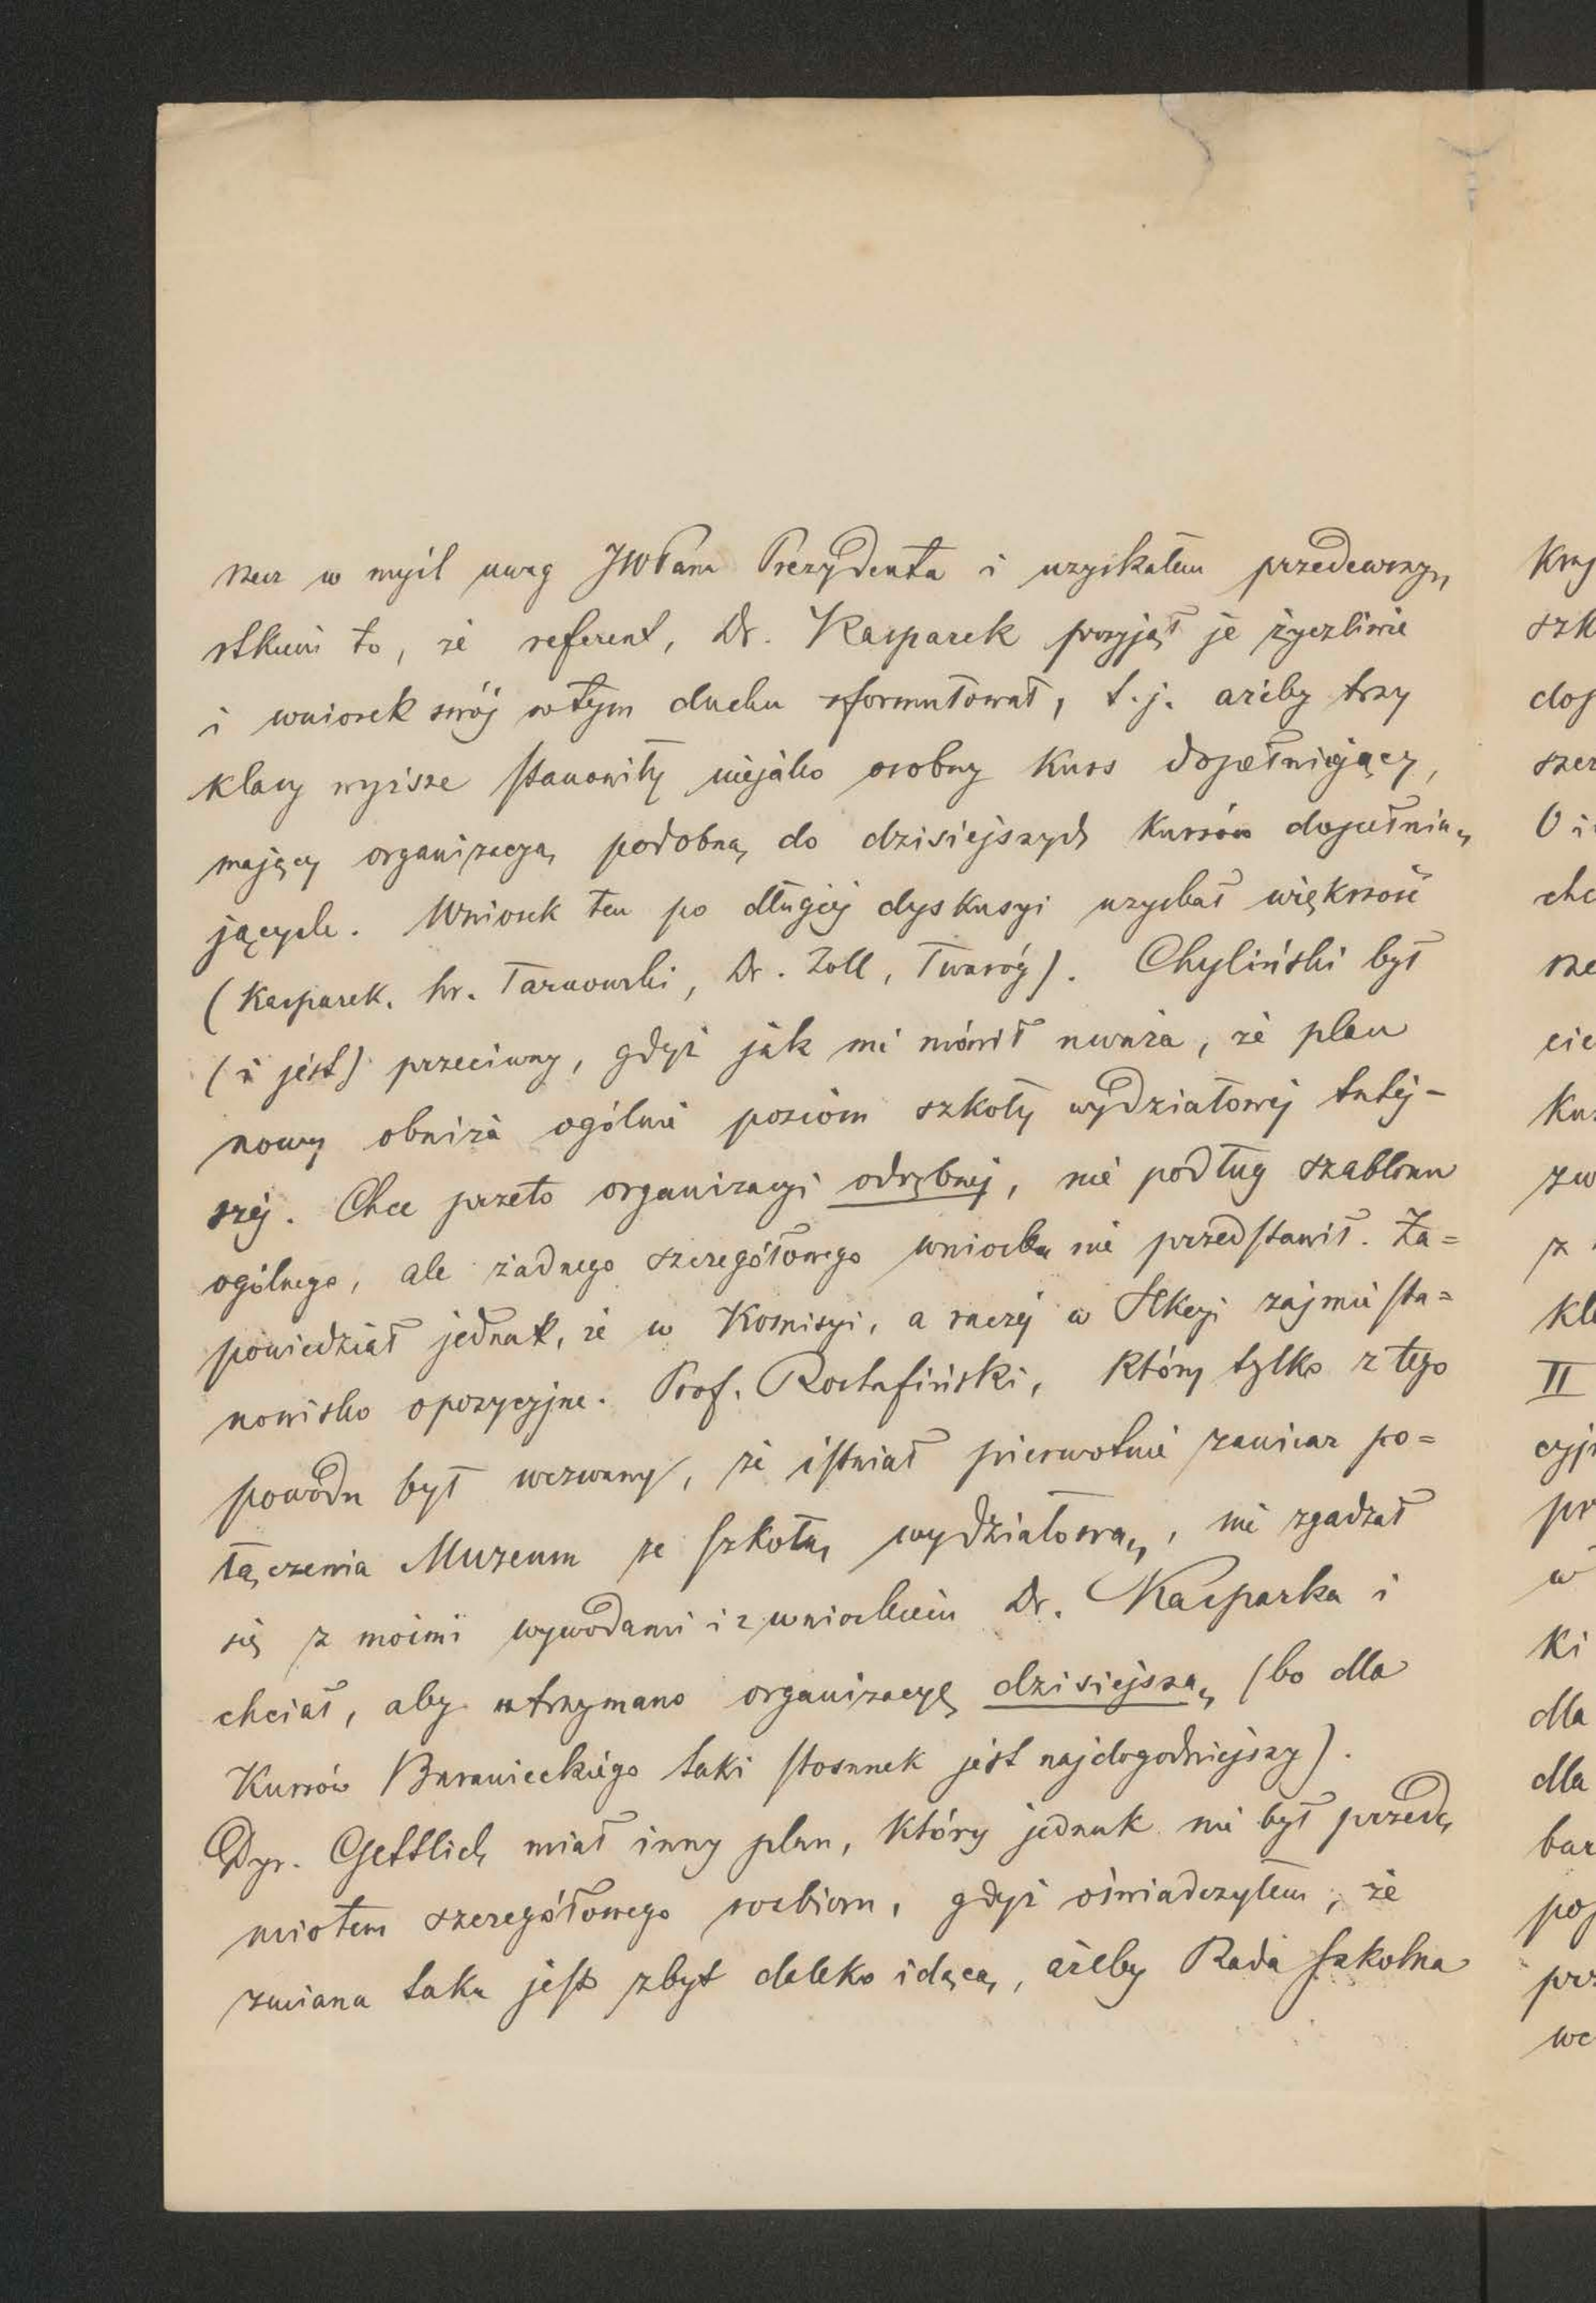 recz w myśl uwag JWPana Prezydenta i uzyskałem przedewszy„
stkiem to, że referent, Dr. Kasparek przyjął je życzliwie
i wniosek swój w tym duchu sformułował, t. j. ażeby trzy
klasy wyższe stanowiły niejako osobny Kurs dopełniający,
mający organizacyą podobną do dzisiejszych Kursów dopełnia„
jących. Wniosek ten po długiej dyskusyi uzyskał większość
(Kasparek, hr. Tarnowski, Dr. Zoll, Twaróg). Chyliński był
(i jest) przeciwny, gdyż jak mi mówił uważa, że plan
nowy obniża ogólnie poziom szkoły wydziałowej tutej-
szej. Chce przeto organizacyi odrębnej, nie podług szablonu
ogólnego, ale żadnego szczegółowego wniosku nie przedstawił. Za=
powiedział jednak, że w Komisyi, a raczej w Sekcyi zajmie sta=
nowisko opozycyjne. Prof. Rostafiński, który tylko z tego
powodu był wezwany, że istniał pierwotnie zamiar po=
łączenia Muzeum ze szkołą wydziałową, nie zgadzał
się z moimi wywodami i z wnioskiem Dr. Kasparka i
chciał, aby utrzymano organizacyę dzisiejszą (bo dla
Kursów Baranieckiego taki stosunek jest najdogodniejszy).
Dyr. Gettlich miał inny plan, który jednak nie był przed„
miotem szczegółowego rozbioru, gdyż oświadczyłem, że
zmiana taka jest zbyt daleko idącą, ażeby Rada szkolna